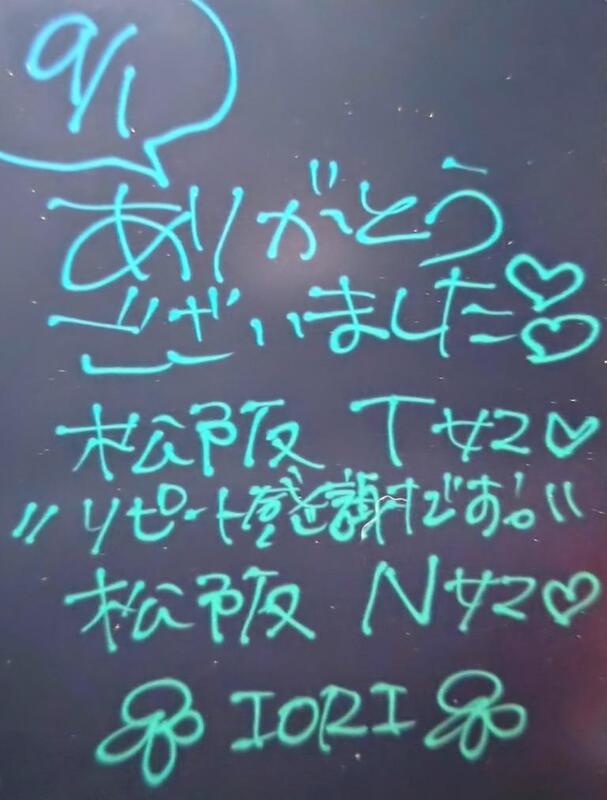 9/1
ありがとう
ございました♡♡
松阪 T女マ♡
〃リピート感謝です!!〃
松阪 N女マ♡
IORI